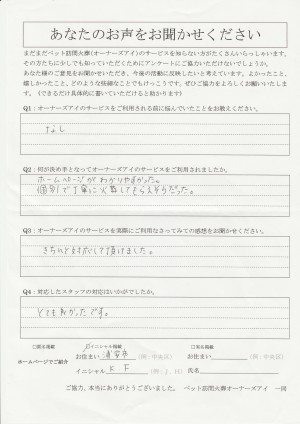 あなたのお声をお聞かせください
まだまだペット訪問火葬(オーナーズアイ)のサービスを知らない方がたくさんいらっしゃいます。
その方たちに少しでも知っていただくためにアンケートにご協力いただけないでしょうか。
あなた様のご意見をお聞かせいただき、今後の活動に反映したいと考えています。よかったこと、
嬉しかったこと、どのような些細なことでもけっこうです。ぜひご協力をよろしくお願いいたします。(できるだけ具体的に書いていただけると助かります)
Q1:オーナーズアイのサービスをご利用される前に悩んでいたことをお教えください。
なし
Q2:何が決め手となってオーナーズアイのサービスをご利用されましたか。
ホームページがわかりやすかった。
個別で丁寧に火葬してもらえそうだった。
Q3:オーナーズアイのサービスを実際にご利用なさってみての感想をお聞かせください。
きちんと対応して頂けました。
Q4:対応したスタッフの対応はいかがでしたか。
とても良かったです。
□匿名掲載 ☑イニシャル掲載 □実名掲載
ホームページでご紹介
お住まい 浦安市 (例:中央区) お住まい (例:中央区)
イニシャル K F (例:J.H) 氏名
ご協力、本当にありがとうございました。 ペット訪問火葬オーナーズアイ 一同